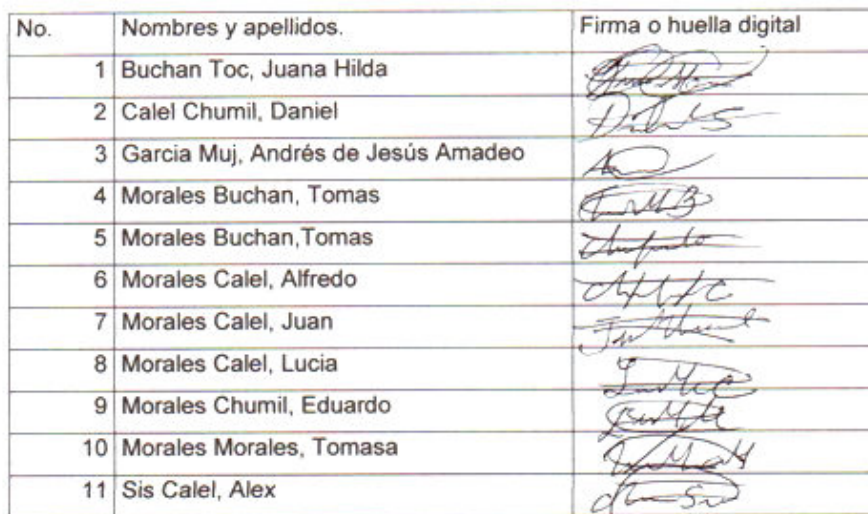 No. Nombres y apellidos. Firma o huella digital
1 Buchan Toc, Juana Hilda
2 Calel Chumil, Daniel
3 Garcia Muj, Andrés de Jesús Amadeo
4 Morales Buchan, Tomas
5 Morales Buchan,Tomas
6 Morales Calel, Alfredo
7 Morales Calel, Juan
8 Morales Calel, Lucia
9 Morales Chumil, Eduardo
10 Morales Morales, Tomasa
11 Sis Calel, Alex